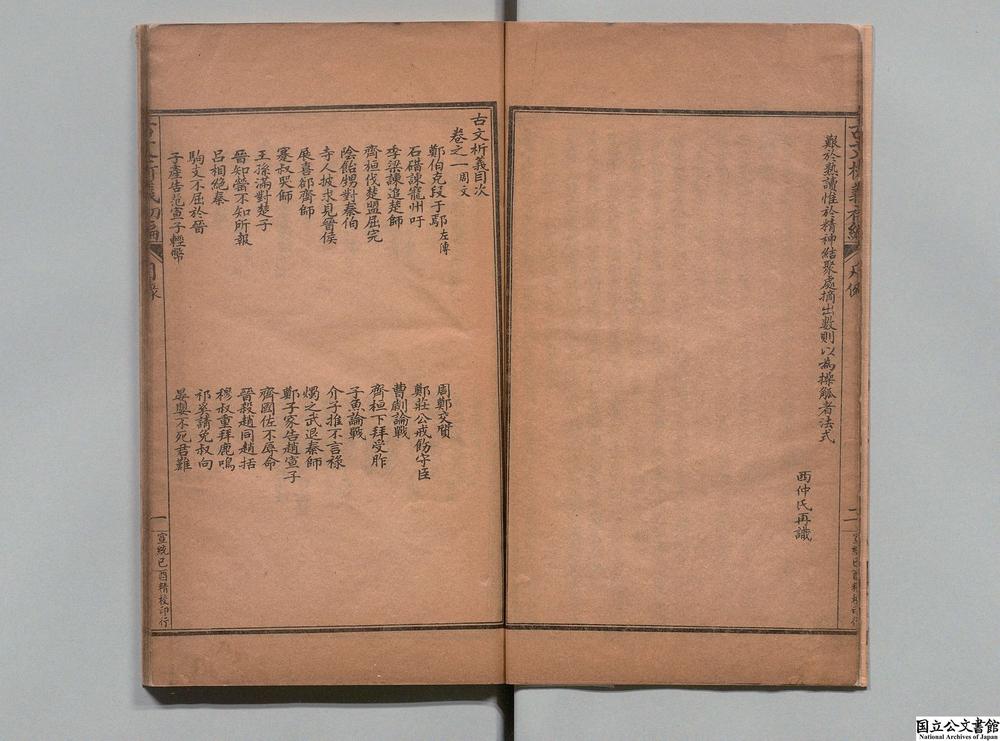 艱於熟讀惟於精神結聚處摘出數則以為操觚者法式
西仲氏再識
二
宣統己酉精校印行
古文析義目次
卷之一 周文
鄭伯克段于鄢 左傳
周鄭交質
石碏諫寵州吁
鄭莊公戒飭守臣
季梁諫追楚師
曹劌論戰
齊桓伐楚盟屈完
齊桓下拜受胙
陰飴甥對秦伯
子魚論戰
寺人披求見晉侯
介子推不言祿
展喜卻齊師
燭之武退秦師
蹇叔哭師
鄭子家告趙宣子
王孫滿對楚子
齊國佐不辱命
晉知罃不知所報
晉殺趙同趙括
呂相絕秦
穆叔重拜鹿鳴
駒支不屈於晉
祁奚請免叔向
子產告范宣子輕幣
晏嬰不死君難
古文析義初編
目錄
一
宣統己酉精校印行
国立公文書館
National Archives of Japan